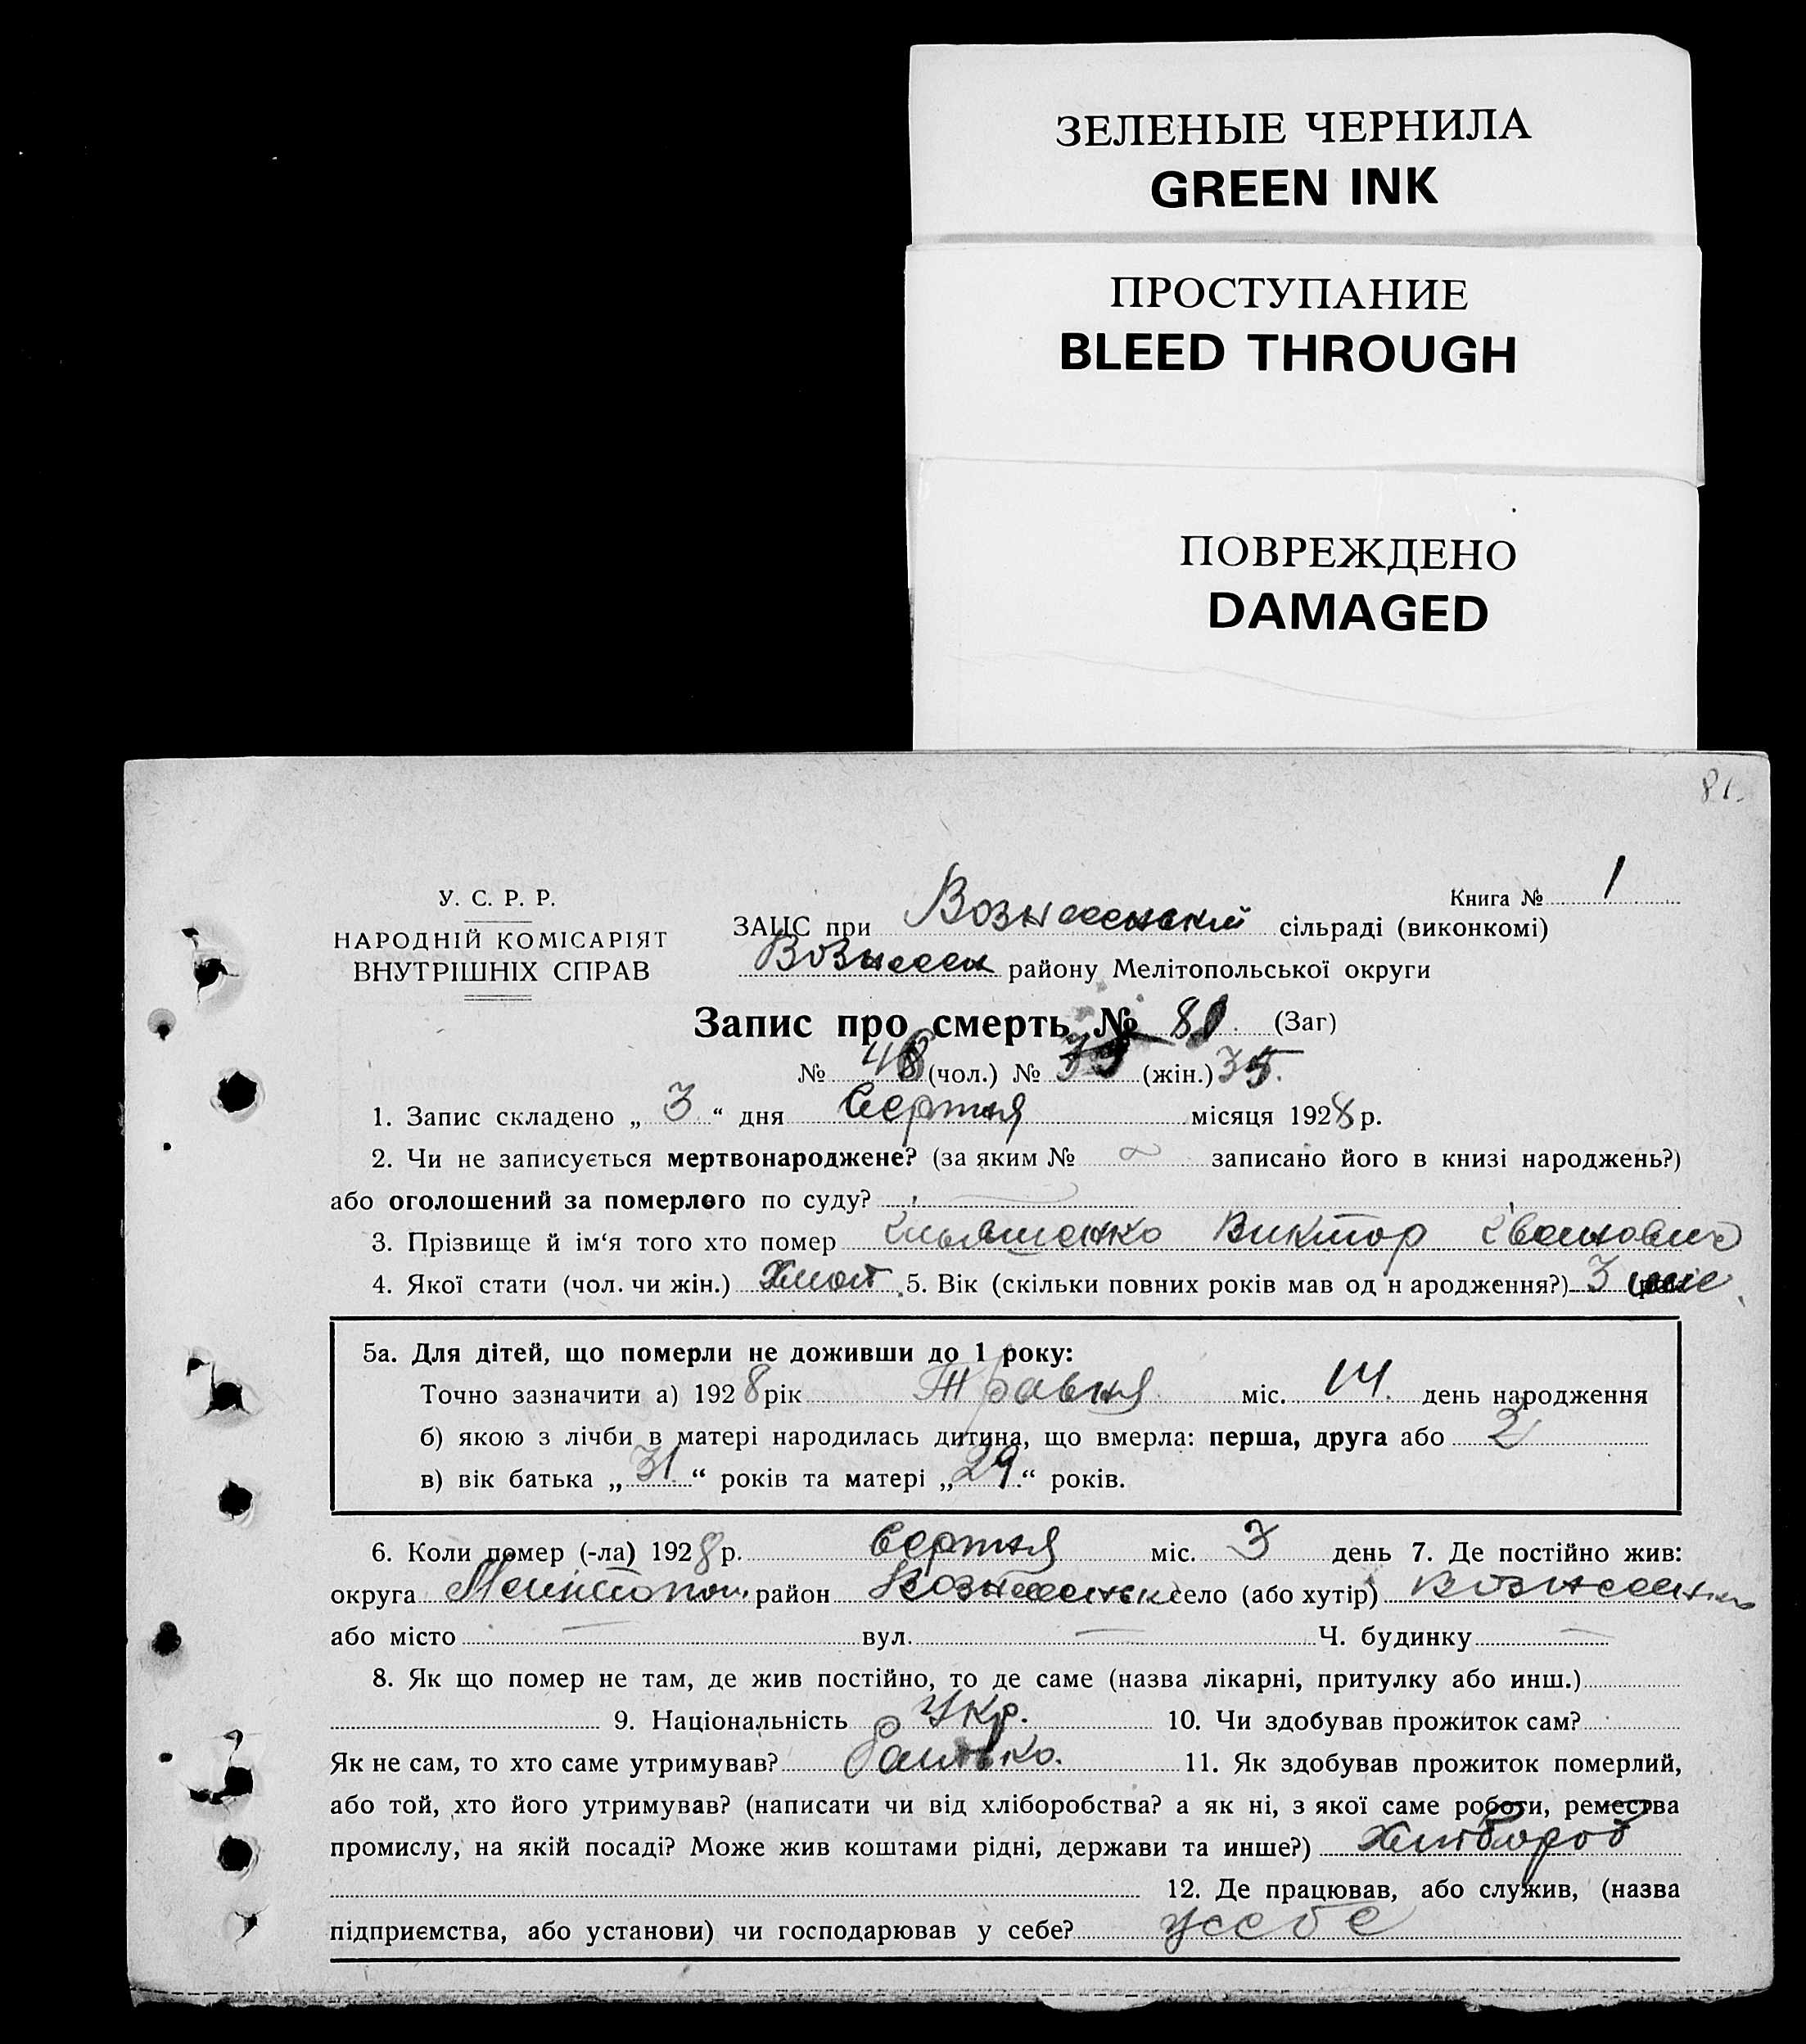 ЗЕЛЕНЫЕ ЧЕРНИЛА
GREEN INK
ПРОСТУПАНИЕ
BLEED THROUGH
ПОВРЕЖДЕНО
DAMAGED
81.
У. С. Р. Р.
НАРОДНІЙ КОМІСАРІЯТ
ВНУТРІШНІХ СПРАВ
Книга № 1
ЗАЦС при Вознесенский сільраді (виконкомі)
Вознесен району Мелітопольської округи
Запис про смерть № 81. (Заг)
№ 48 (чол.) № 35 (жін.) 35.
1. Запис складено „ 3 “ дня Серпня місяця 1928 р.
2. Чи не записується мертвонароджене? (за яким № записано його в книзі народжень?)
або оголошений за померлого по суду?
3. Прізвище й ім‘я того хто помер Ильяшенко Виктор Иванович
4. Якої стати (чол. чи жін.) 5. Вік (скільки повних років мав од н ародження?) 3 міс.
5а. Для дітей, що померли не доживши до 1 року:
Точно зазначити а) 1928 рік Травня міс. 14. день народження
б) якою з лічби в матері народилась дитина, що вмерла: перша, друга або 2
в) вік батька „ 31 “ років та матері „ 29 “ років.
6. Коли помер (-ла) 1928 р. Серпня міс. 3 день 7. Де постійно жив:
округа Мелітопол. район Вознесенськ село (або хутір) Вознесенка
або місто — вул. — Ч. будинку —
8. Як що помер не там, де жив постійно, то де саме (назва лікарні, притулку або инш.)
9. Національність Укр. 10. Чи здобував прожиток сам?
Як не сам, то хто саме утримував? Батько. 11. Як здобував прожиток померлий,
або той, хто його утримував? (написати чи від хліборобства? а як ні, з якої саме роботи, ремества
промислу, на якій посаді? Може жив коштами рідні, держави та инше?) Хлібороб
12. Де працював, або служив, (назва
підприємства, або установи) чи господарював у себе? у себе